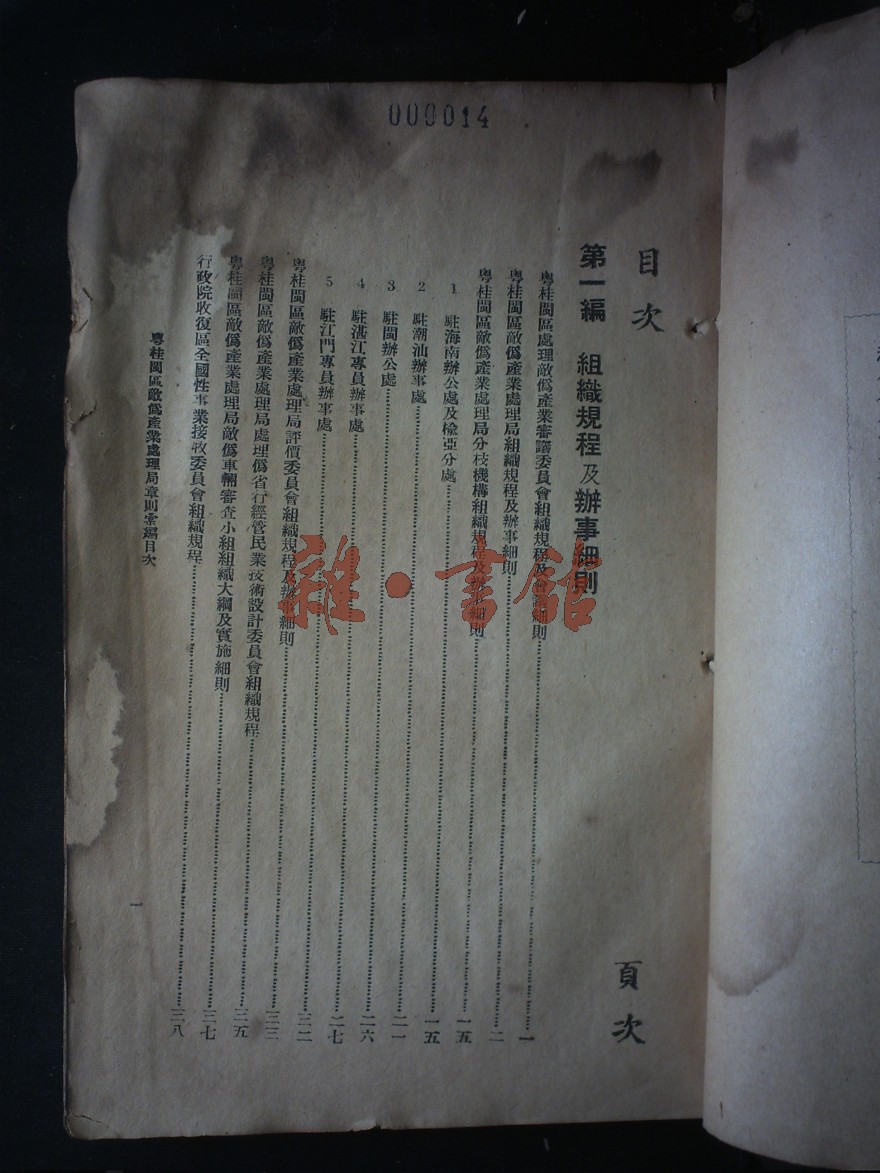 000014
目次
頁次
第一編　組織規程及辦事細則
粵桂閩區處理敵僞產業審議委員會組織規程及會議細則……一
粵桂閩區敵僞產業處理局組織規程及辦事細則……二
粵桂閩區敵僞產業處理局分枝機構組織規程及辦事細則……一五
1　駐海南辦公處及榆亞分處……一五
2　駐潮汕辦事處……二一
3　駐閩辦公處……二六
4　駐湛江專員辦事處……二七
5　駐江門專員辦事處……三二
粵桂閩區敵僞產業處理局評價委員會組織規程及辦事細則……三三
粵桂閩區敵僞產業處理局處理僞省行經管民業技術設計委員會組織規程……三五
粵桂閩區敵僞產業處理局敵僞車輛審查小組組織大綱及實施細則……三七
行政院收復區全國性事業接收委員會組織規程……三八
粵桂閩區敵僞產業處理局章則彙編目次
一
雜·書館